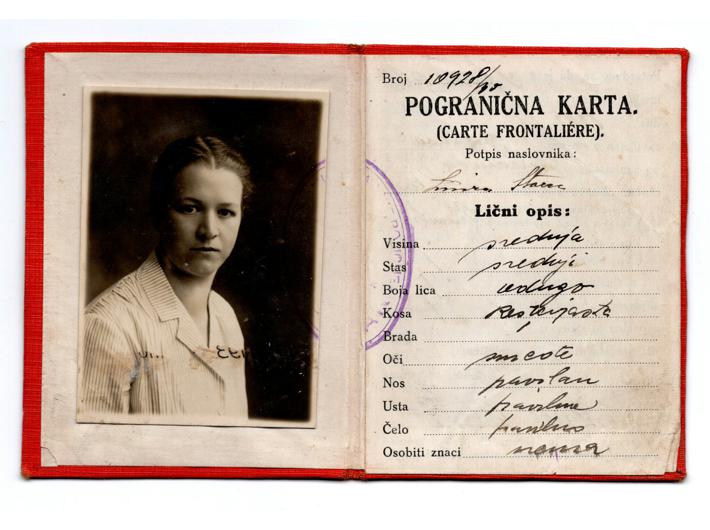 Broj 10928/30
POGRANIČNA KARTA.
(CARTE FRONTALIÉRE).
Potpis naslovnika:
Lični opis:
Visina srednja
Stas srednji
Boja lica
Kosa kestenjasta
Brada
Oči
Nos pravilan
Usta pravilne
Čelo
Osobiti znaci nema